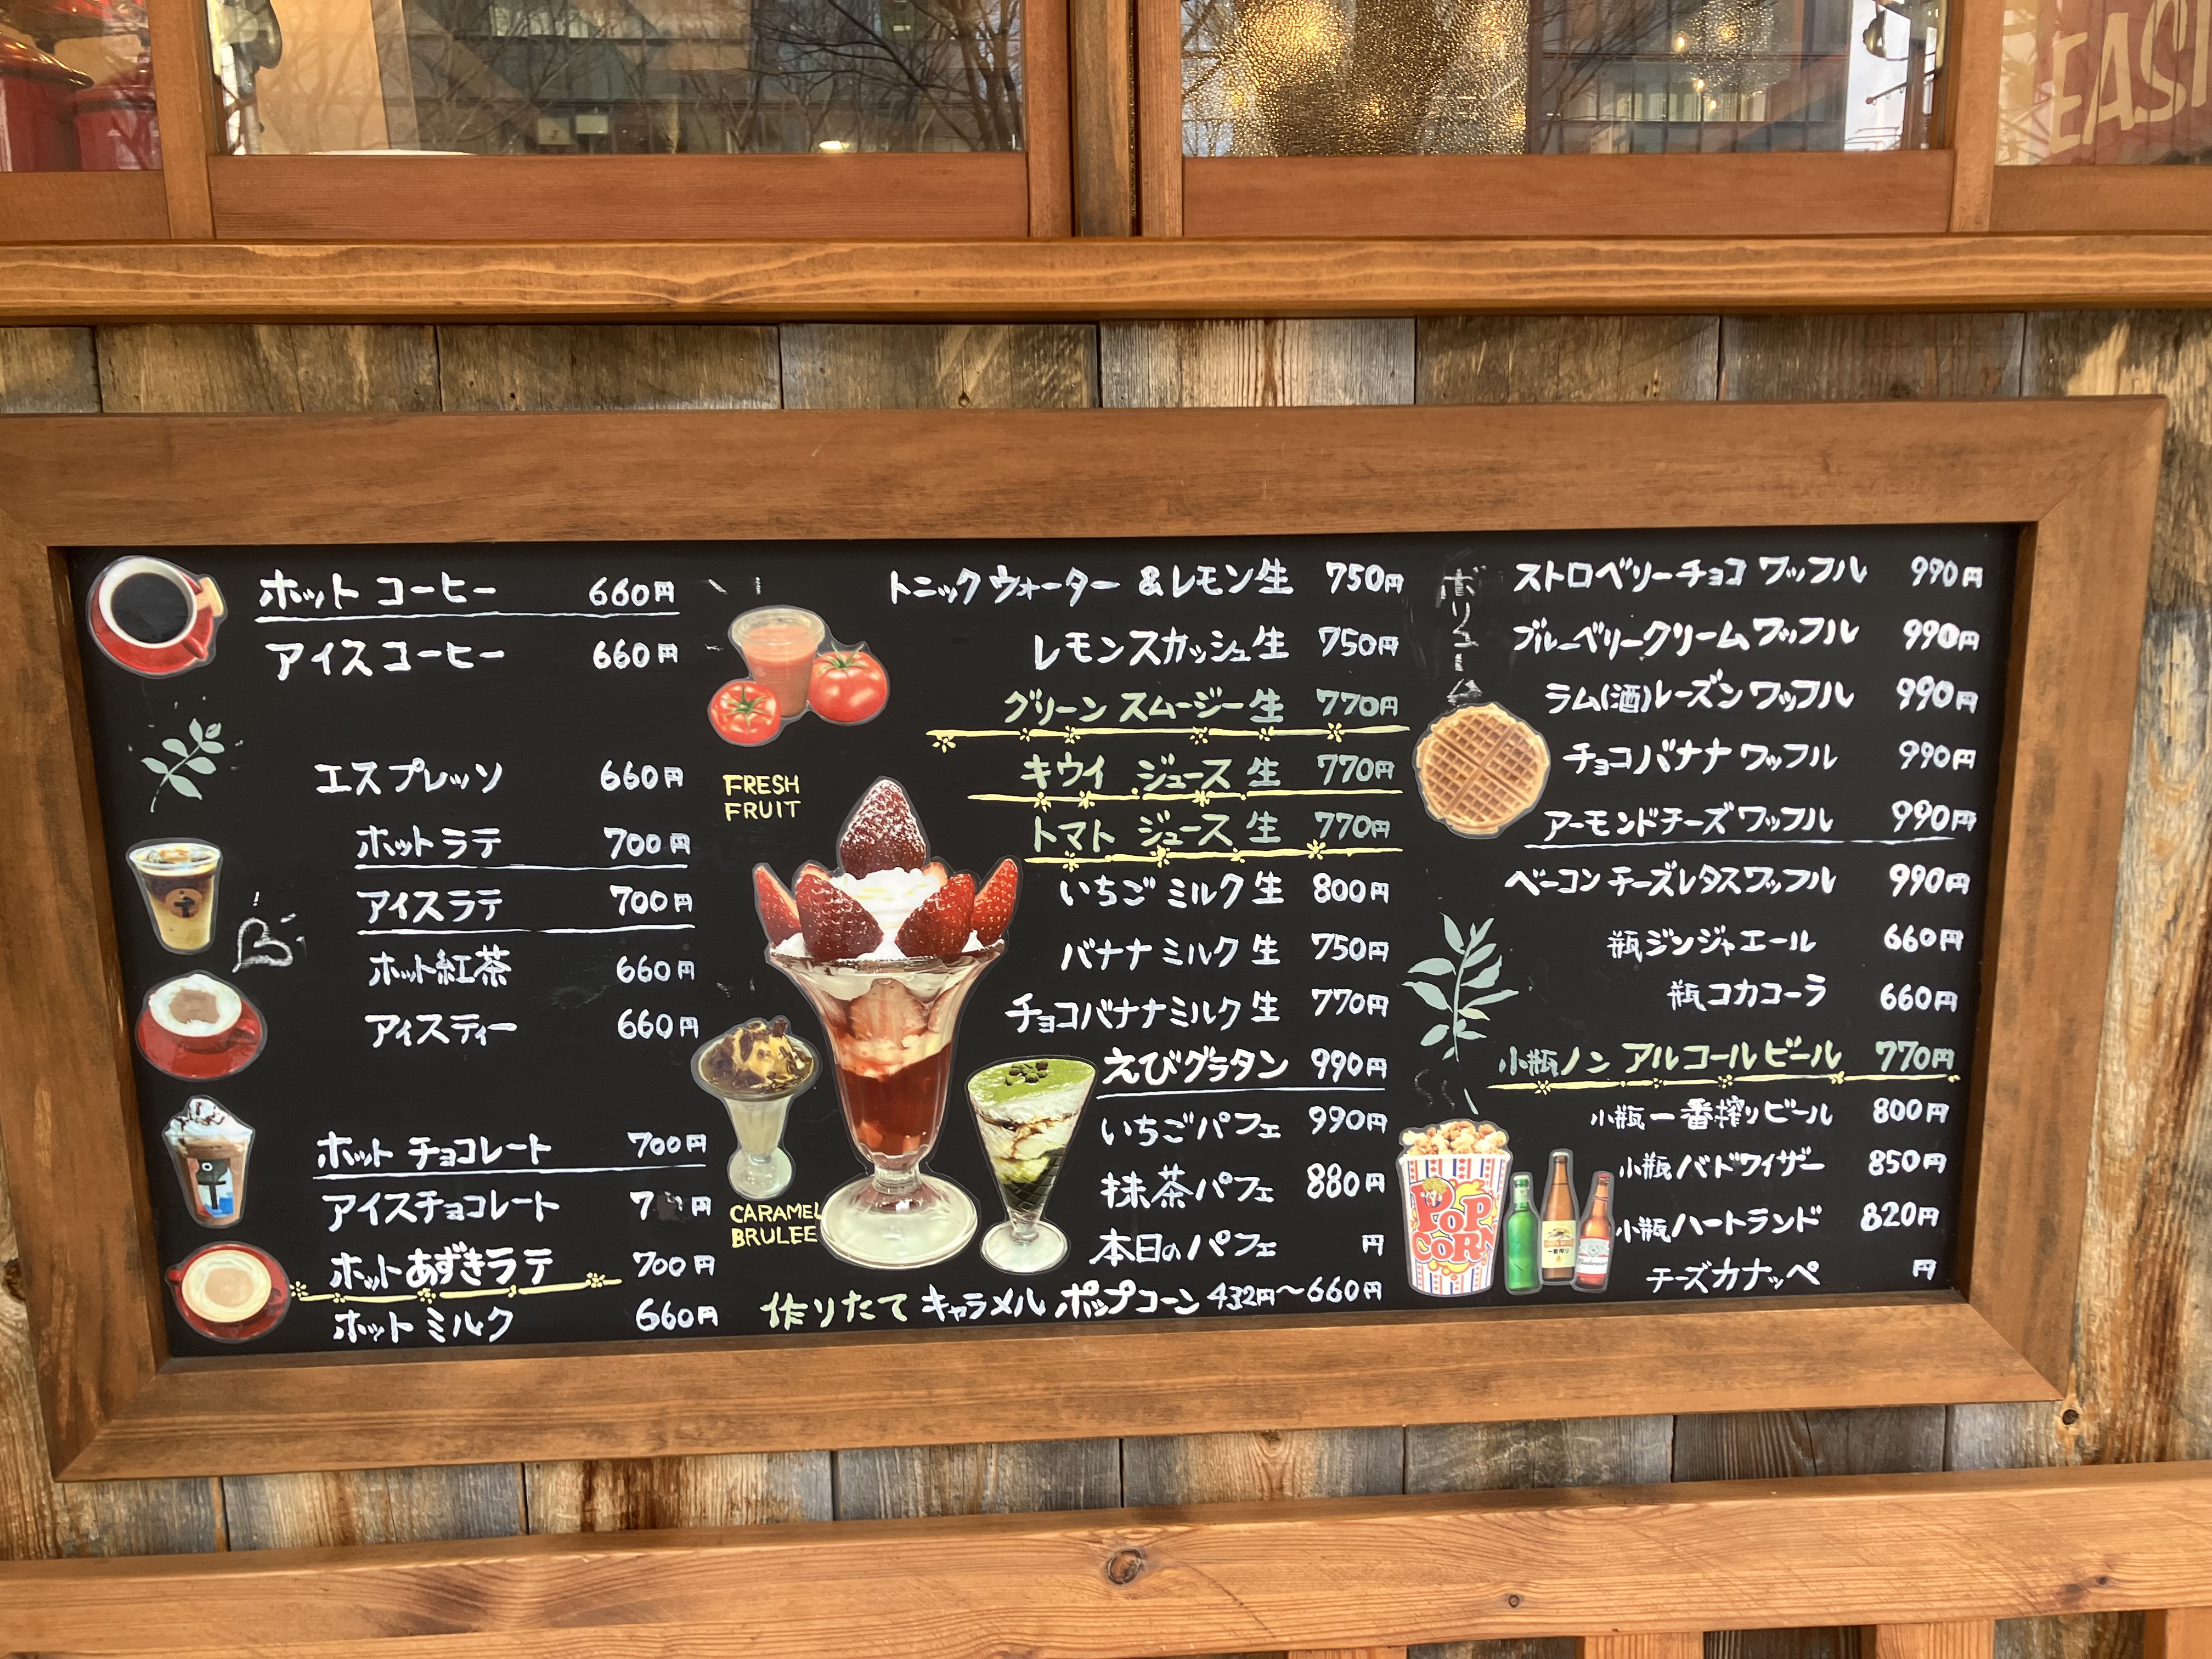 EAS
ホット コーヒー 660円
アイス コーヒー 660円
エスプレッソ 660円
ホットラテ 700円
アイスラテ 700円
ホット紅茶 660円
アイスティー 660円
ホット チョコレート 700円
アイスチョコレート 7 円
ホットあずきラテ 700円
ホット ミルク 660円
FRESH
FRUIT
CARAMEL
BRULEE
トニックウォーター &レモン生 750円
レモンスカッシュ生 750円
グリーン スムージー生 770円
キウイ ジュース 生 770円
トマト ジュース 生 770円
いちご ミルク 生 800円
バナナ ミルク 生 750円
チョコバナナミルク 生 770円
えびグラタン 990円
いちごパフェ 990円
抹茶パフェ 880円
本日のパフェ 円
作りたて キャラメル ポップコーン 432円〜660円
ボリューム
ストロベリーチョコ ワッフル 990円
ブルーベリークリームワッフル 990円
ラム(酒)レーズン ワッフル 990円
チョコバナナ ワッフル 990円
アーモンドチーズワッフル 990円
ベーコンチーズレタスワッフル 990円
瓶ジンジャエール 660円
瓶コカコーラ 660円
小瓶ノン アルコールビール 770円
小瓶一番搾りビール 800円
小瓶バドワイザー 850円
小瓶ハートランド 820円
チーズカナッペ 円
POP
CORN